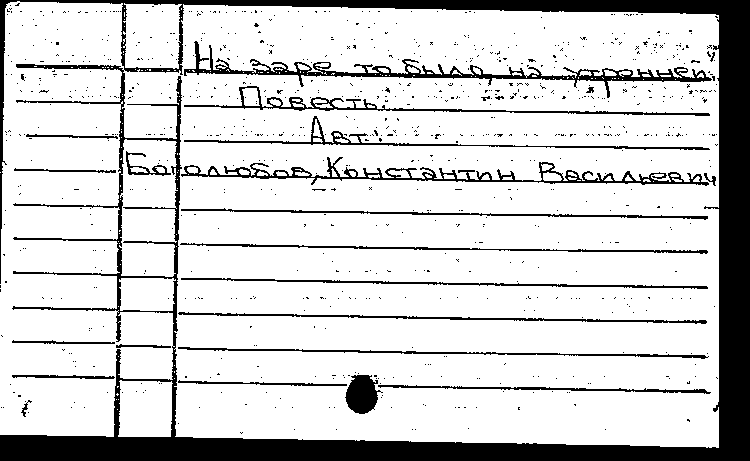 На заре то было, на утренней.
Повесть.
Авт.:
Боголюбов, Константин Васильевич